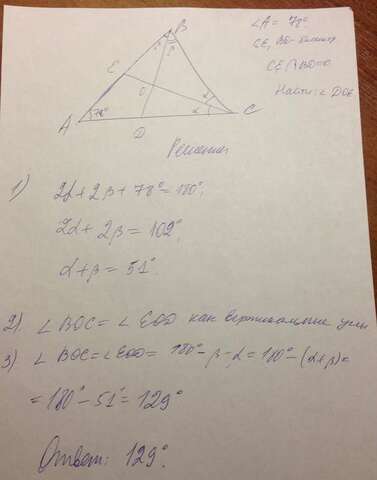 ∠A = 78°
CE, BD - биссектр.
CE ∩ BD = O
Найти: ∠DOE
B
β β
E
O
α
α
A
78°
D
C
Решение
1)
2α + 2β + 78° = 180°;
2α + 2β = 102°;
α + β = 51°.
2). ∠BOC = ∠EOD как вертикальные углы
3) ∠BOC = ∠EOD = 180° - β - α = 180° - (α + β) =
= 180° - 51° = 129°
Ответ: 129°.